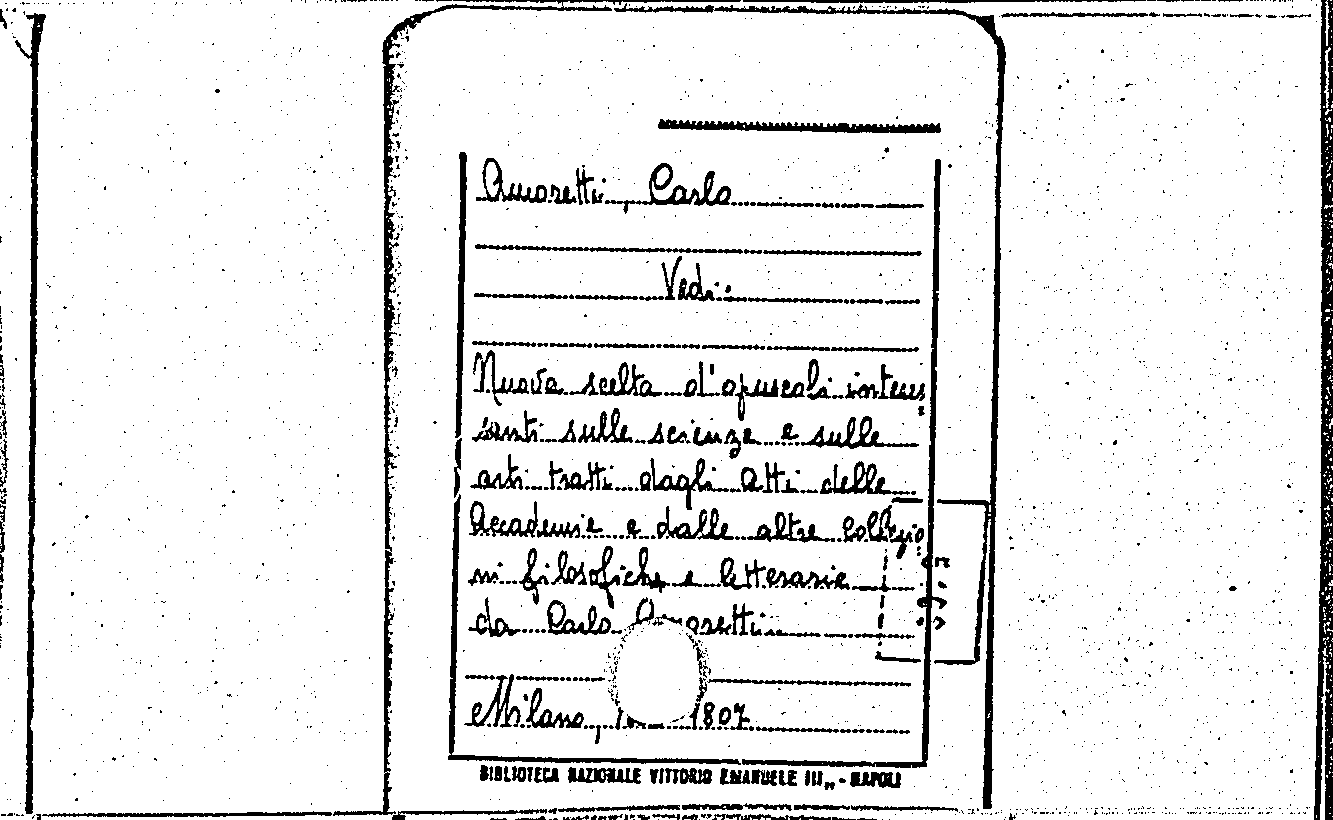 Amoretti, Carlo
Vedi:
Nuova scelta d'opuscoli interes
santi sulle scienze e sulle
arti tratti dagli Atti delle
Accademie e dalle altre collezio
ni filosofiche e letterarie
da Carlo Amoretti.
Milano, 1807
BIBLIOTECA NAZIONALE VITTORIO EMANUELE III„ - NAPOLI